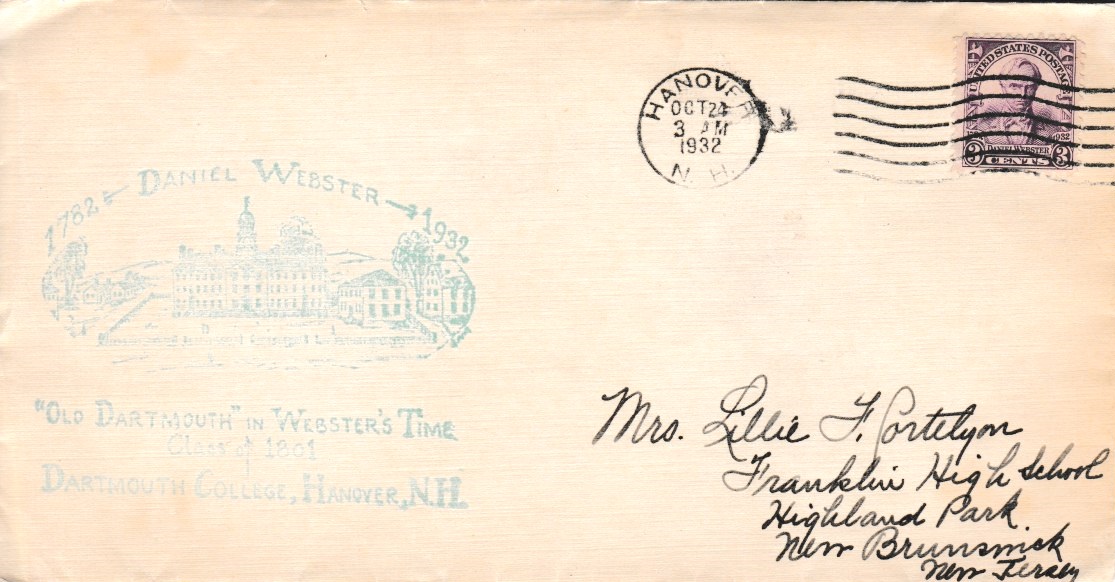 DANIEL WEBSTER
1782 1932
"OLD DARTMOUTH" IN WEBSTER'S TIME
Class of 1801
DARTMOUTH COLLEGE, HANOVER, N.H.
HANOVER
OCT 24
3 AM
1932
N. H.
UNITED STATES POSTAGE
1932
DANIEL WEBSTER
3 CENTS 3
Mrs. Lillie F. Cortelyou
Franklin High School
Highland Park
New Brunswick
New Jersey